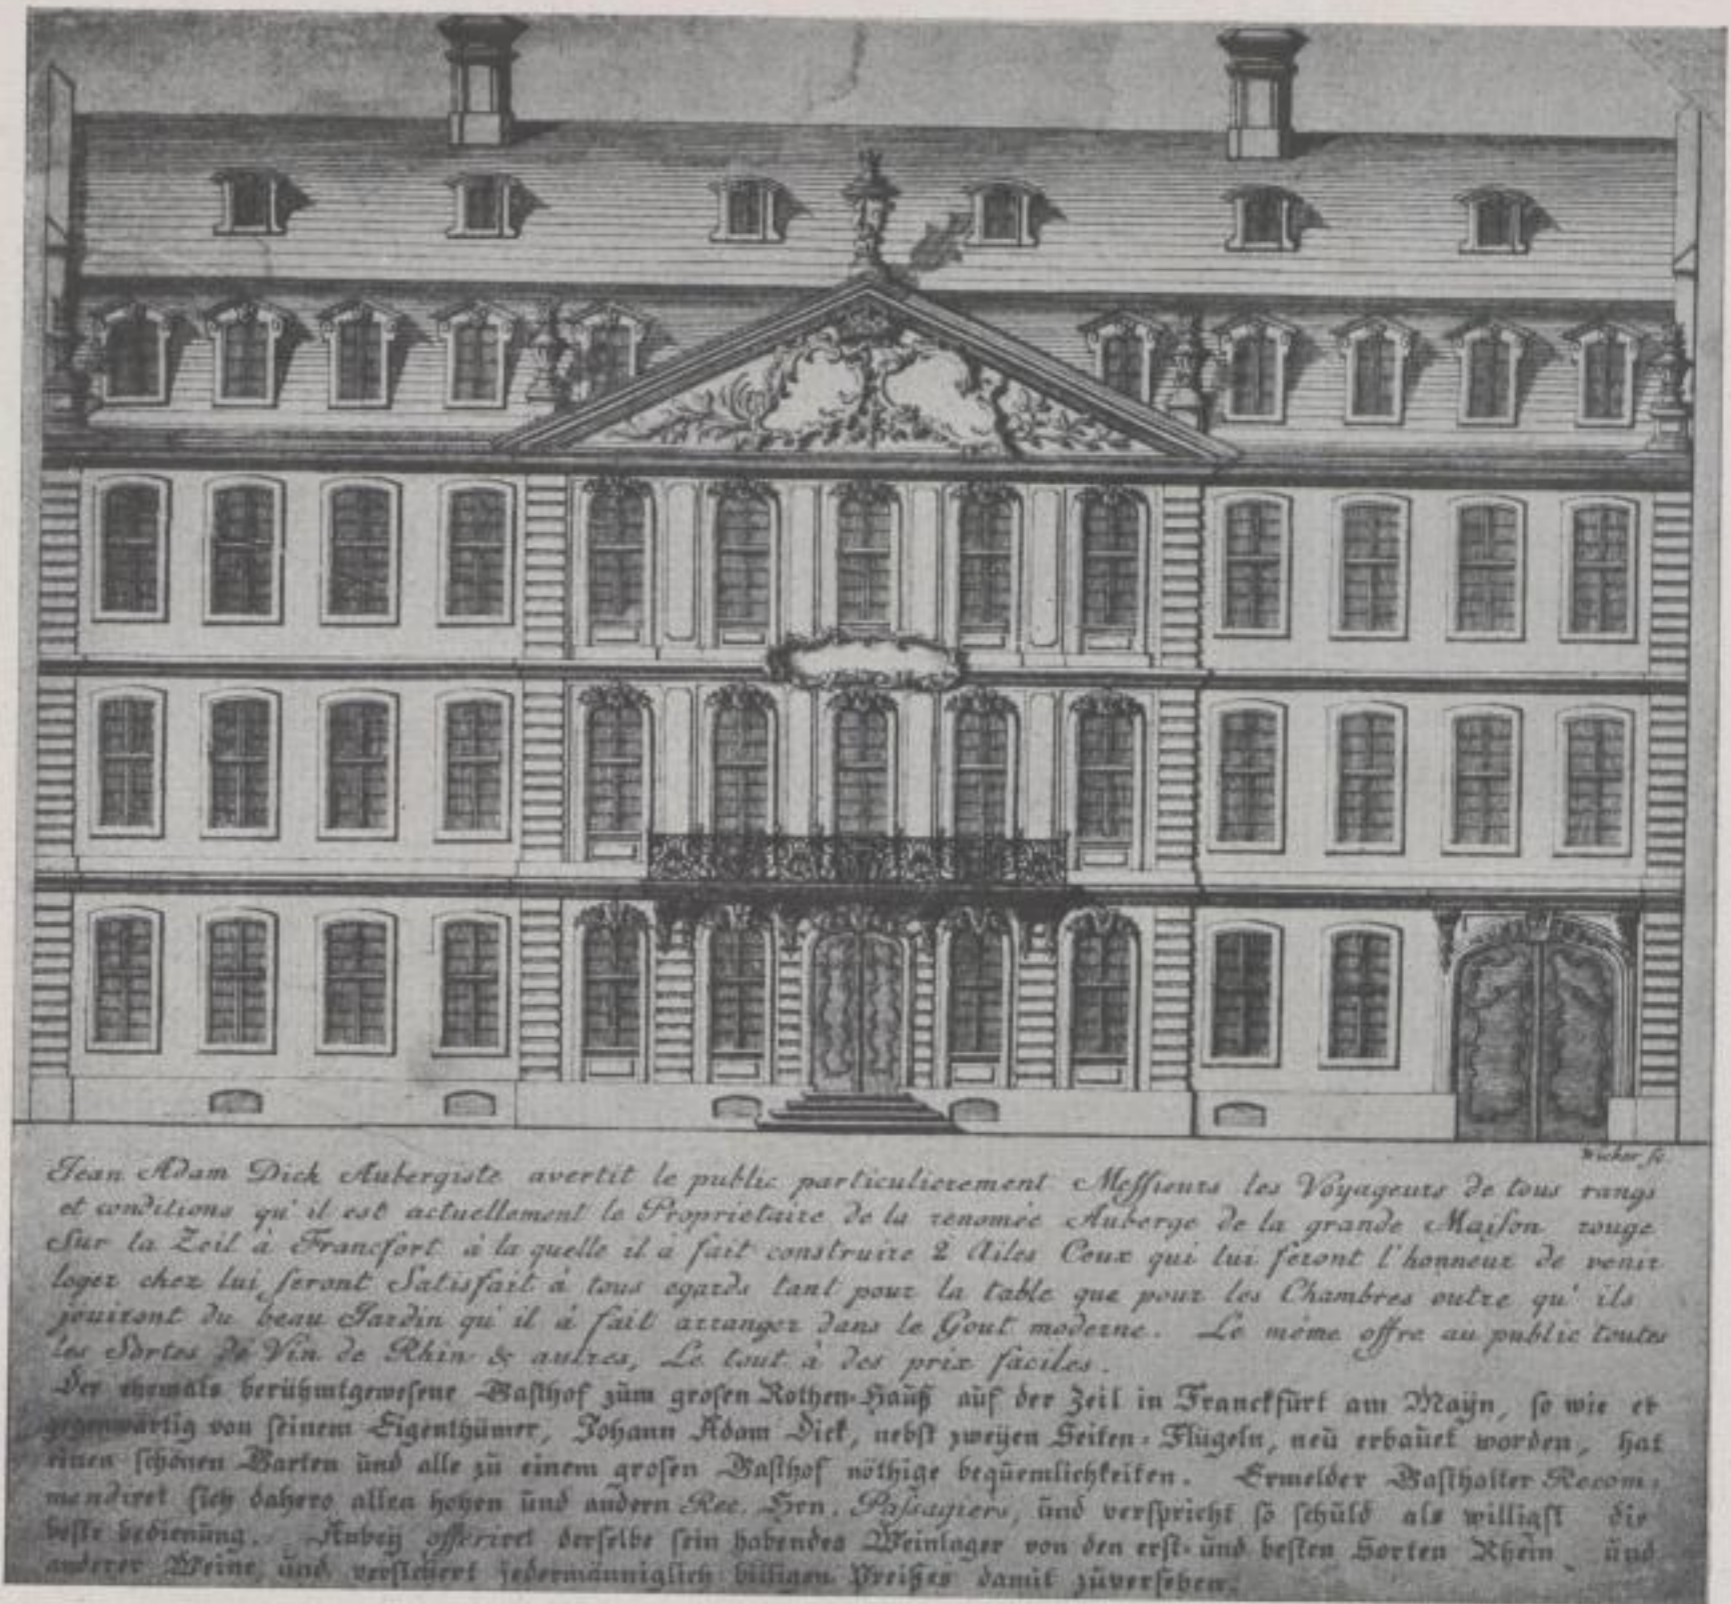 Wicker sc.
Jean Adam Dick Aubergiste avertit le public particulierement Messieurs les Voyageurs de tous rangs
et conditions qu'il est actuellement le Proprietaire de la renomée Auberge de la grande Maiſon rouge
Sur la Zeil à Francfort à la quelle il à fait construire 2 Ailes Ceux qui lui ſeront l'honneur de venir
loger chez lui ſeront Satisfait à tous egards tant pour la table que pour les Chambres outre qu'ils
jouiront du beau Jardin qu'il à fait arranger dans le Gout moderne. Le même offre au public toutes
les Sortes de Vin de Rhin & autres, Le tout à des prix faciles.
Der ehemals berühmtgeweſene Gaſthof zùm groſen Rothen-Haùß aùf der Zeil in Franckfùrt am Maÿn, ſo wie er
gegenwärtig von ſeinem Eigenthümer, Johann Adam Dick, nebſt zweÿen Seiten-Flügeln, neù erbaùet worden, hat
einen ſchönen Garten ùnd alle zù einem groſen Gaſthof nöthige beqùemlichkeiten. Ermelder Gaſthalter Recom-
mendiret ſich dahero allen hohen ùnd andern Rec. Hrn. Paſsagiers, ùnd verſpricht ſo ſchùld als willigſt die
beſte bedienùng. Anbeÿ offeriret derſelbe ſein habendes Weinlager von den erſt- ùnd beſten Sorten Rhein- ùnd
anderer Weine, ùnd verſichert jedermänniglich billigen Preißes damit zùverſehen.